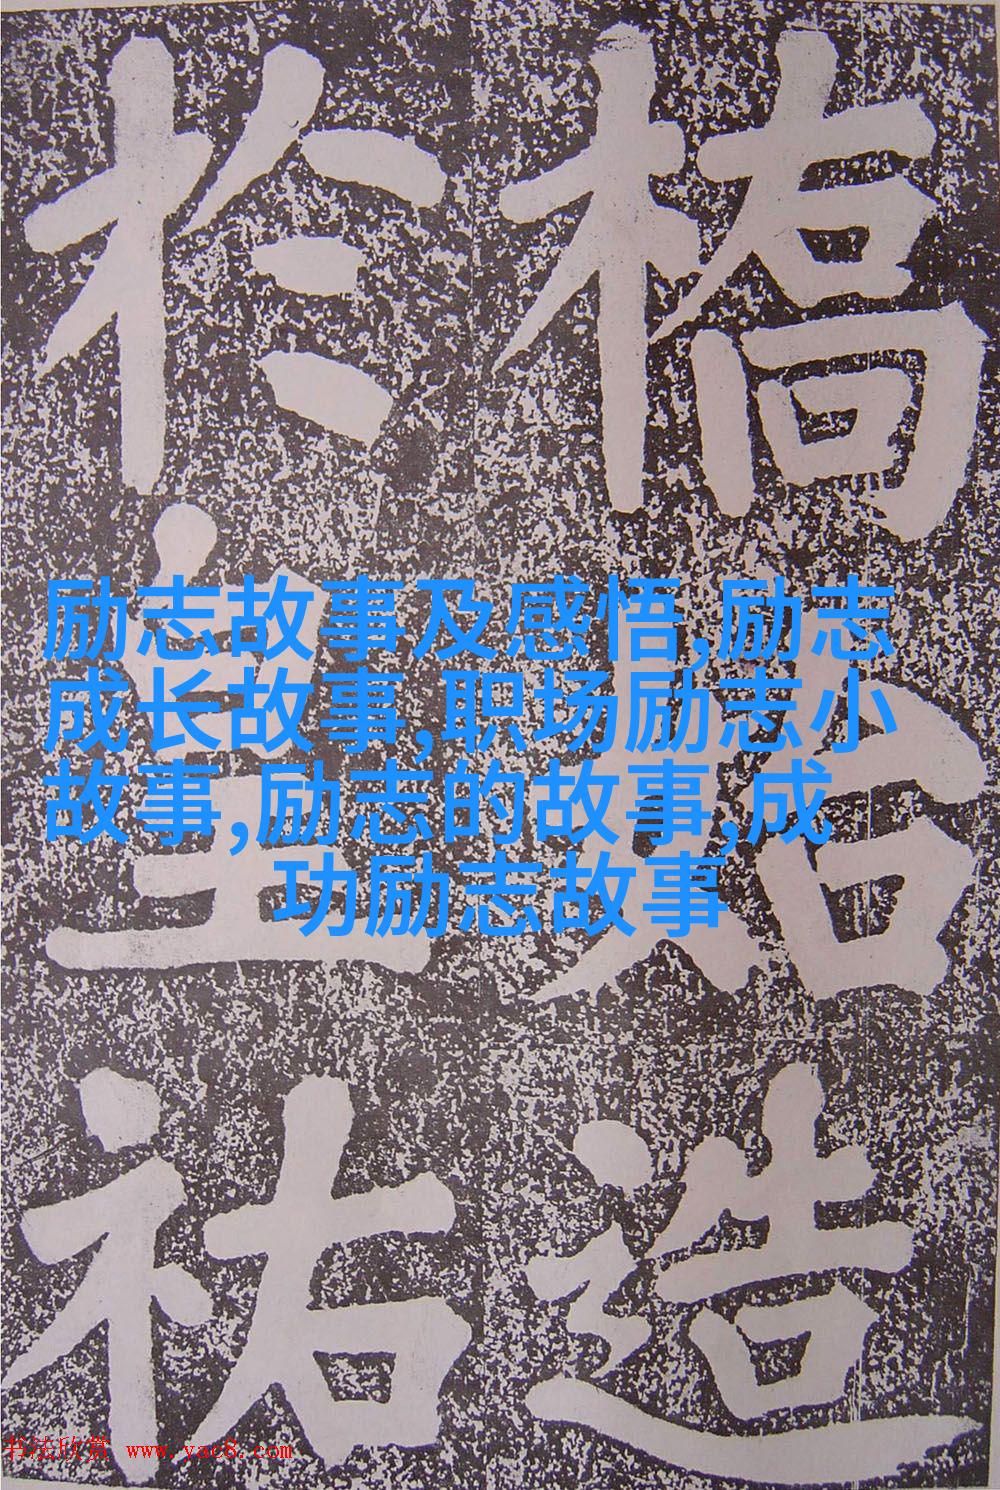 橋始造
於皇祐
励志故事及感悟,励志
成长故事,职场励志小
故事,励志的故事,成
功励志故事
书法欣赏 www.yac8.com